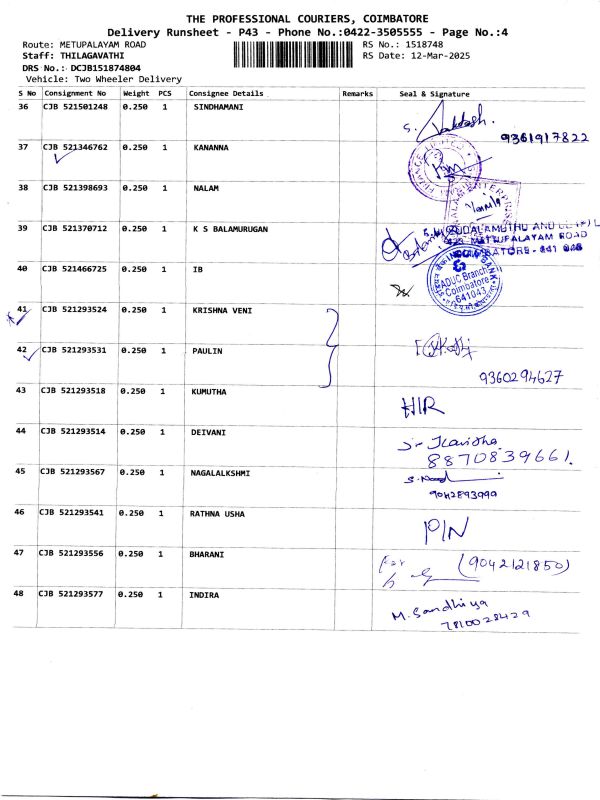 THE PROFESSIONAL COURIERS, COIMBATORE
Delivery Runsheet - P43 - Phone No.:0422-3505555 - Page No.:4
Route: METUPALAYAM ROAD RS No.: 1518748
Staff: THILAGAVATHI RS Date: 12-Mar-2025
DRS No.: DCJB151874804
Vehicle: Two Wheeler Delivery
S No Consignment No Weight PCS Consignee Details Remarks Seal & Signature
36 CJB 521501248 0.250 1 SINDHAMANI
9361917822
37 CJB 521346762 0.250 1 KANANNA
38 CJB 521398693 0.250 1 NALAM
39 CJB 521370712 0.250 1 K S BALAMURUGAN
METTUPALAYAM ROAD
40 CJB 521466725 0.250 1 IB
INDIAN BANK
Branch
Coimbatore
641043
41 CJB 521293524 0.250 1 KRISHNA VENI
42 CJB 521293531 0.250 1 PAULIN
9360294627
43 CJB 521293518 0.250 1 KUMUTHA HIR
44 CJB 521293514 0.250 1 DEIVANI
8870839661.
45 CJB 521293567 0.250 1 NAGALALKSHMI
9042893999
46 CJB 521293541 0.250 1 RATHNA USHA PIN
47 CJB 521293556 0.250 1 BHARANI For (9042121850)
48 CJB 521293577 0.250 1 INDIRA M. Sandhiya
7810028429